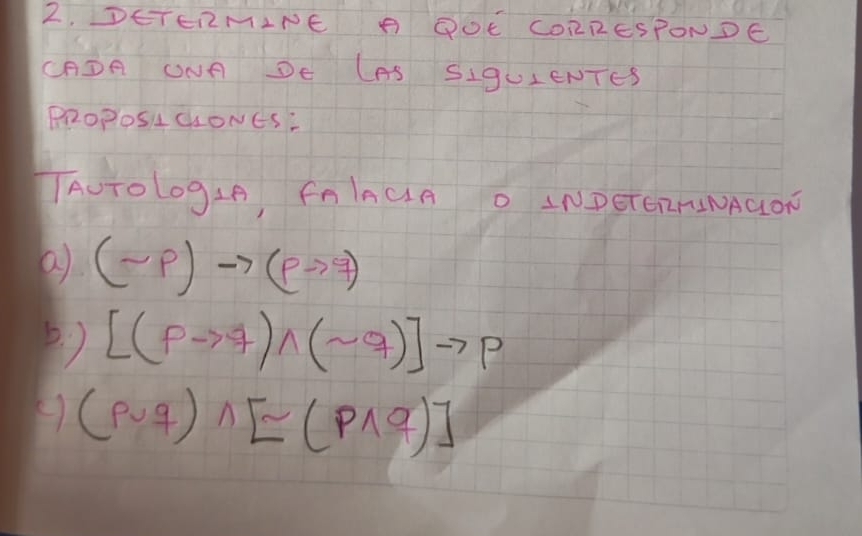 2. DETERMINE A QUÉ CORRESPONDE
CADA UNA DE LAS SIGUIENTES
PROPOSICIONES:
TAUTOLOGIA, FALACIA O INDETERMINACIÓN
a) (~p) -> (p->q)
b.) [(p->q)∧(~q)] -> p
c) (p∪q) ∧ [~(p∧q)]